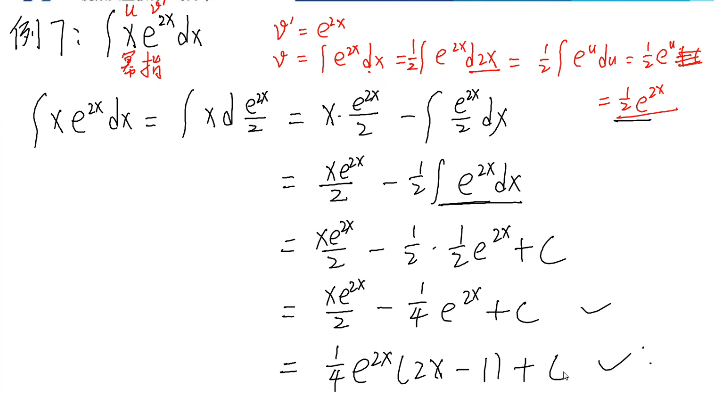 u v'
例7: ∫xe^{2x}dx
幂 指
v' = e^{2x}
v = ∫e^{2x}dx = \frac{1}{2}∫e^{2x}d2x = \frac{1}{2}∫e^u du = \frac{1}{2}e^u
= \frac{1}{2}e^{2x}
∫xe^{2x}dx = ∫xd\frac{e^{2x}}{2} = x·\frac{e^{2x}}{2} - ∫\frac{e^{2x}}{2}dx
= \frac{xe^{2x}}{2} - \frac{1}{2}∫e^{2x}dx
= \frac{xe^{2x}}{2} - \frac{1}{2}·\frac{1}{2}e^{2x}+C
= \frac{xe^{2x}}{2} - \frac{1}{4}e^{2x}+C ✓
= \frac{1}{4}e^{2x}(2x-1)+C ✓